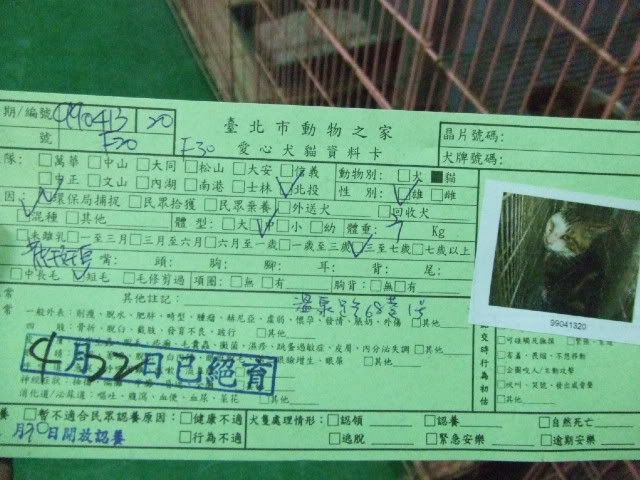 期/編號 990413 20 臺北市動物之家 晶片號碼:
號 F20 F30 愛心犬貓資料卡 犬牌號碼:
隊: □萬華 □中山 □大同 □松山 □大安 □信義 動物別: □犬 ■貓
□中正 □文山 □內湖 □南港 □士林 □北投 性別: □雄 □雌
因: □環保局捕捉 □民眾拾獲 □民眾棄養 □外送犬 □回收犬
□混種 □其他 體型: □大 □中 □小 □幼 體重: Kg
□未離乳 □一至三月 □三至六月 □六月至一歲 □一歲至三歲 □三至七歲 □七歲以上
嘴: 頭: 腳: 耳: 背: 尾:
□中長毛 □短毛 □毛修剪過 項圈: □無 □有 胸背: □無 □有
常 其他註記: 溫泉路68巷1號
常 一般外表: 削瘦、脫水、肥胖、畸型、腫瘤、赫尼亞、虛弱、懷孕、發情、脹奶、外傷 □其他
四 肢: 骨折、脫臼、截肢、發育不良、跛行 □其他
4月22日已絕育
消化道/泌尿道: 嘔吐、腹瀉、血便、血尿
99041320
養 □暫不適合民眾認養原因: □健康不適 犬隻處理情形: □認領 □認養 □自然死亡
月30日開放認養 □行為不適 □逃脫 □緊急安樂 □逾期安樂